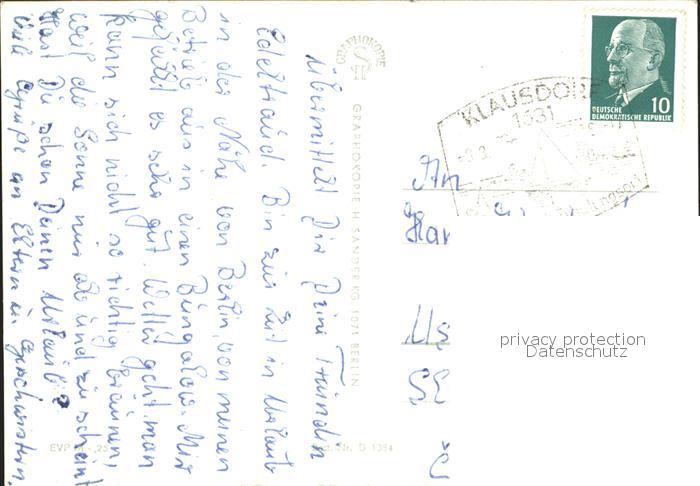 übermittelt Dir Deine Freundin
Edeltraud. Bin zur Zeit in Urlaub
in der Nähe von Berlin, von meinen
Betrieb aus in einen Bungalow. Mir
gefällt es sehr gut. Wetter geht, man
kann sich nicht so richtig bräunen,
weil die Sonne nur ab und zu scheint
Hast Du schon Deinen Urlaub?
Viele Grüße an Eltern u. Geschwistern
GRAPHOKOPIE
GRAPHOKOPIE H. SANDER KG, 1071 BERLIN
EVP
Best.-Nr. D 1384
KLAUSDORF
1631
DEUTSCHE
DEMOKRATISCHE REPUBLIK
10
An
privacy protection
Datenschutz